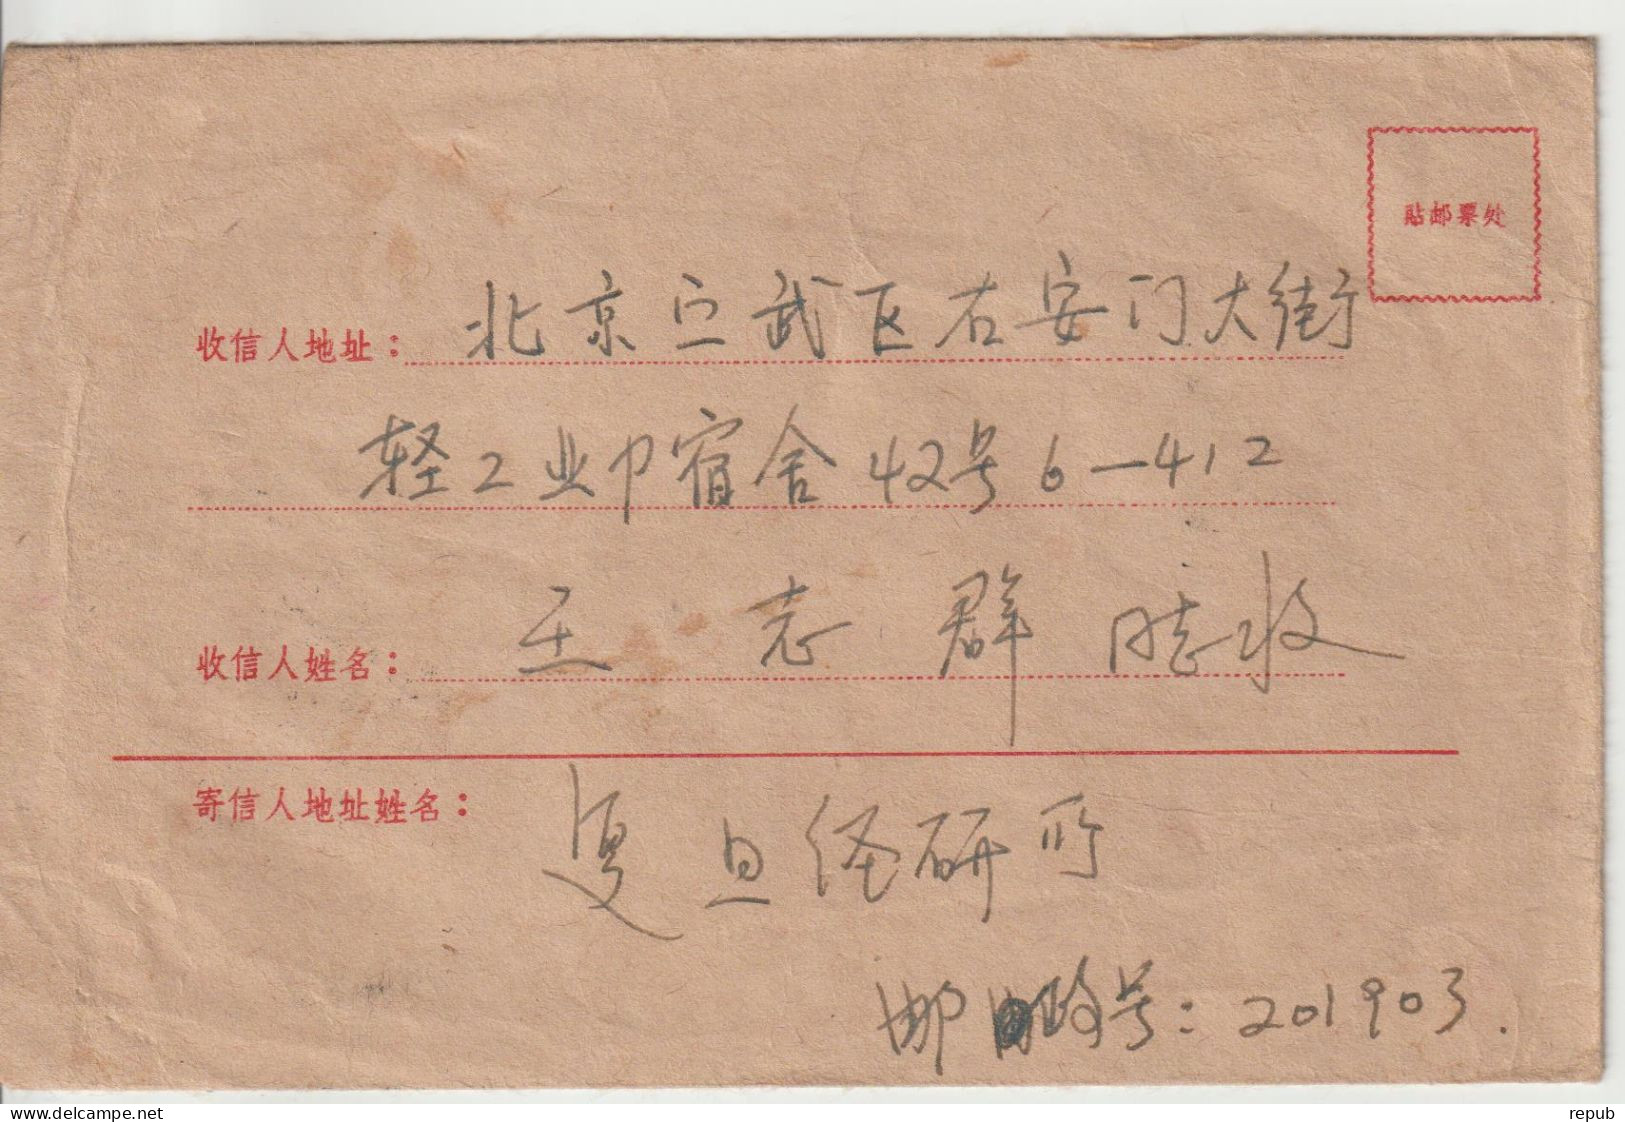 贴邮票处
收信人地址：北京宣武区右安门大街
轻工业部宿舍42号6—412
收信人姓名：王志群 收
寄信人地址姓名：
复旦经研所
邮政号：201903.
delcampe.net
repub